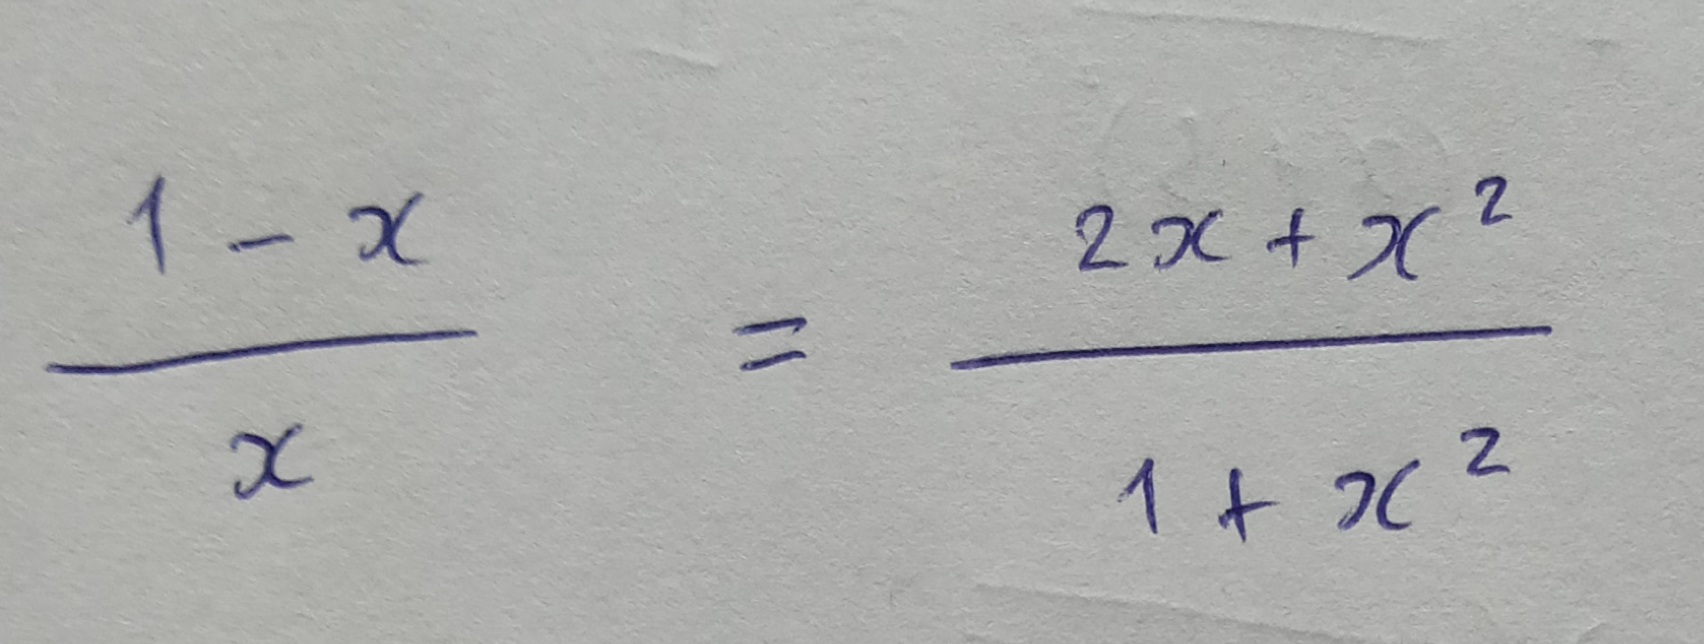 1 - x / x = 2x + x² / 1 + x²